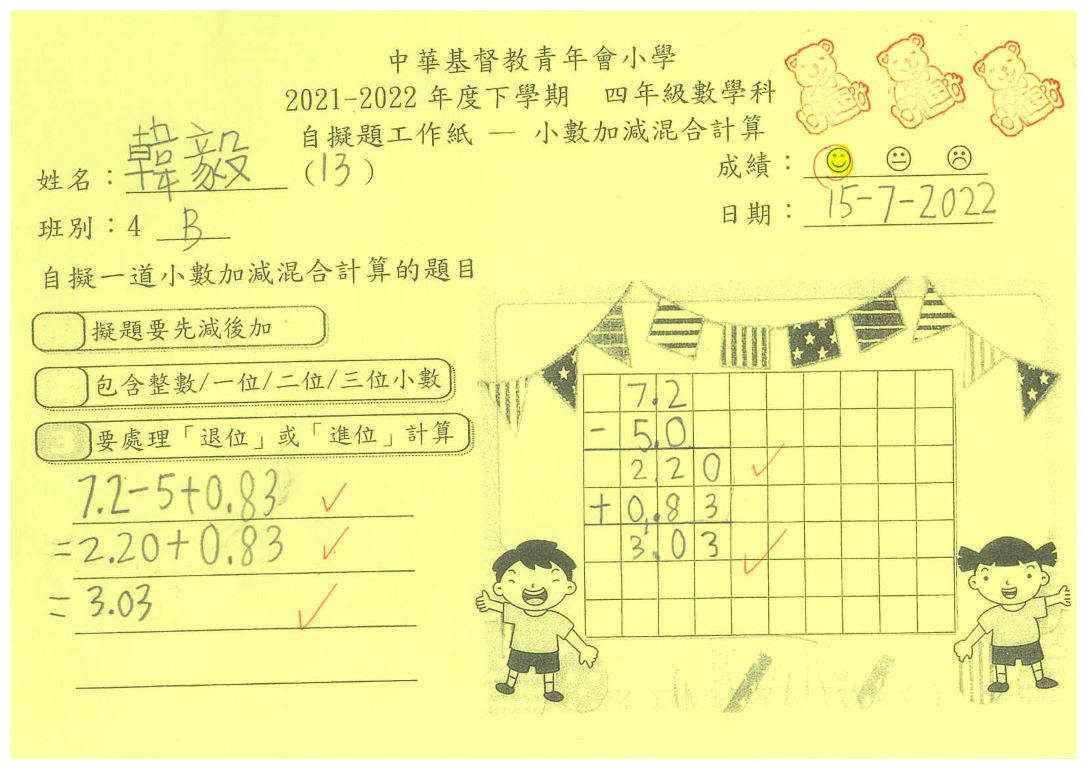 中華基督教青年會小學
2021-2022 年度下學期 四年級數學科
自擬題工作紙 — 小數加減混合計算
姓名：韓毅 (13)
成績：
班別：4 B
日期：15-7-2022
自擬一道小數加減混合計算的題目
擬題要先減後加
包含整數/一位/二位/三位小數
3 要處理「退位」或「進位」計算
7.2-5+0.83
=2.20+0.83
= 3.03
7.2
- 5.0
2.20
+ 0.83
3.03